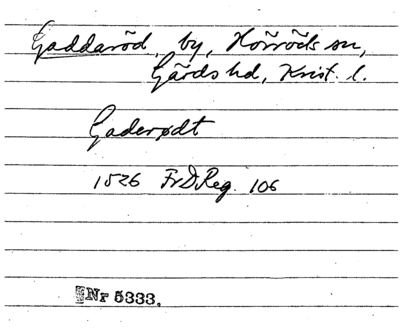 Gaddaröd, by, Hörröds sn,
Gärds hd, Krist. l.
Gaderødt
1526 FrDReg. 106
Nr 5333.